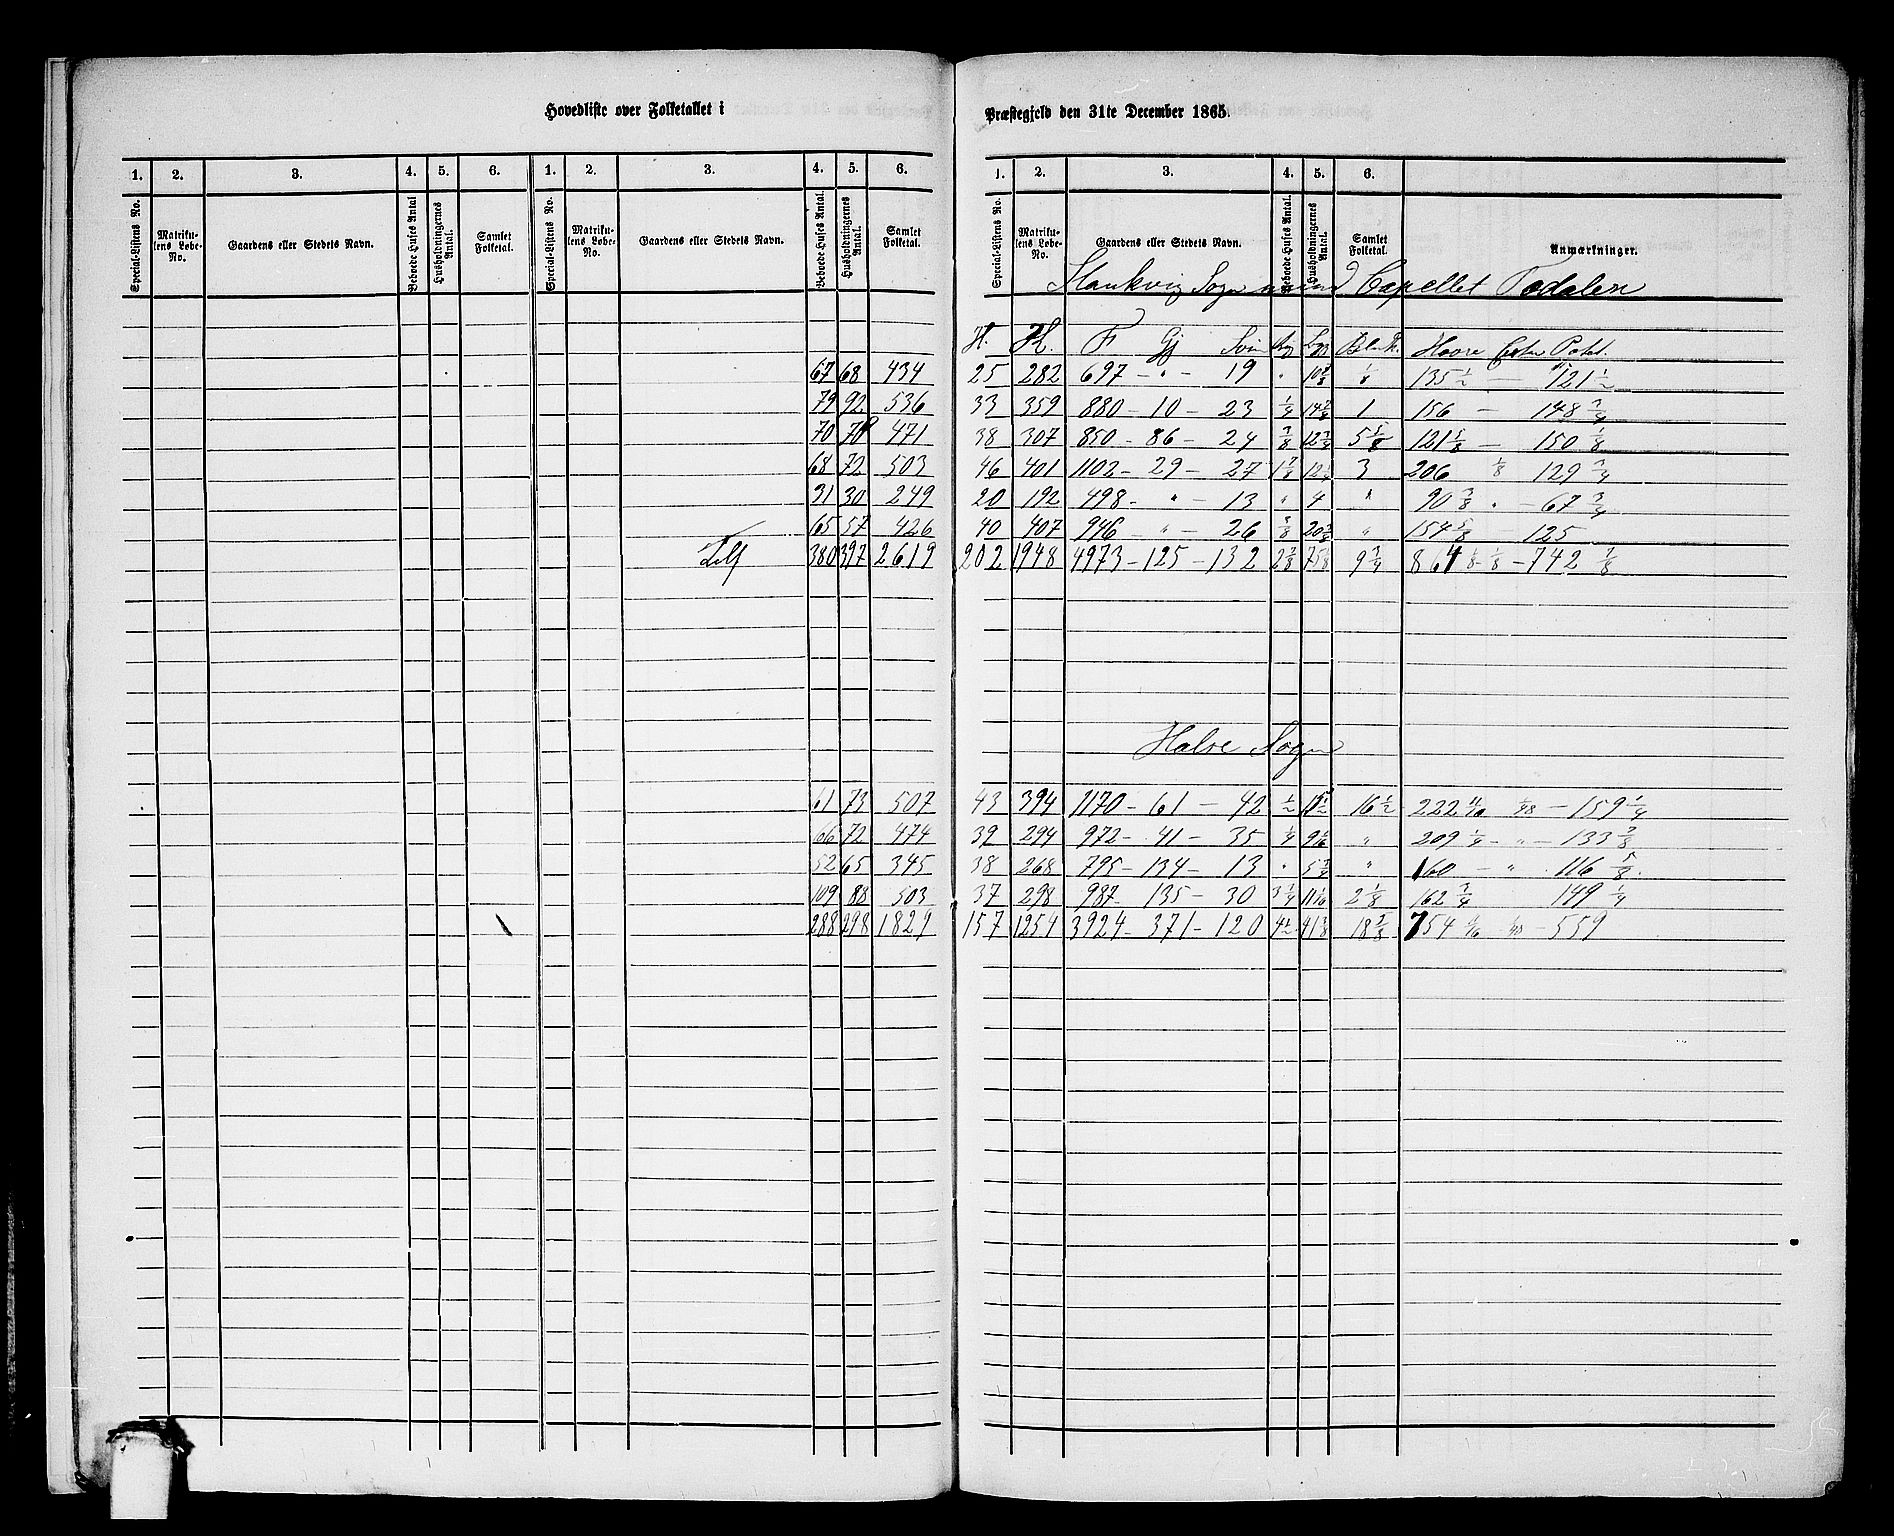 Hovedliste over Folketallet i
Præstegjeld den 31te December 1865.
1. 2. 3. 4. 5. 6. 1. 2. 3. 4. 5. 6.
Special-Listens No. Matrikulens Løbe-No. Gaardens eller Stedets Navn. Beboede Huses Antal Husholdningernes Antal. Samlet Folketal. Special-Listens No. Matrikulens Løbe-No. Gaardens eller Stedets Navn. Beboede Huses Antal. Husholdningernes Antal. Samlet Folketal.
67 68 434
79 92 536
70 78 471
68 72 503
31 30 249
65 57 426
380 397 2619
61 73 507
66 72 474
52 65 345
109 88 503
288 298 1829
1. 2. 3. 4. 5. 6.
Special-Listens No. Matrikulens Løbe-No. Gaardens eller Stedets Navn. Beboede Huses Antal. Husholdningernes Antal. Samlet Folketal. Anmærkninger.
Stankvig Sogn Capellet Todalen
H. H. F Gj Svin Byg Blk. Havre Erter Potet.
25 282 697 - " - 19 " 1/8 135 1/2 — 121 1/2
33 359 880 - 10 - 23 1/4 1 156 — 148 3/4
38 307 850 - 86 - 24 7/8 5 5/8 121 5/8 — 150 1/8
46 401 1102 - 29 - 27 1 3 206 1/8 129 3/4
20 192 498 - " - 13 " 4 " 90 3/8 " - 67 3/4
40 407 946 - " - 26 " 154 5/8 — 125
202 1948 4973 - 125 - 132 9 3/4 864 1/8 1/8 - 742 7/8
Halse Sogn
43 394 1170 - 61 - 42 1/2 16 1/2 222 1/48 - 159 1/4
39 294 972 - 41 - 35 1/4 " 209 1/4 - " - 133 3/8
38 268 795 - 134 - 13 " 5 3/4 " 160 - " 116 5/8
37 298 987 135 - 30 3 1/4 2 1/8 162 3/4 149 1/4
157 1254 3924 - 371 - 120 18 5/8 754 1/48 - 559